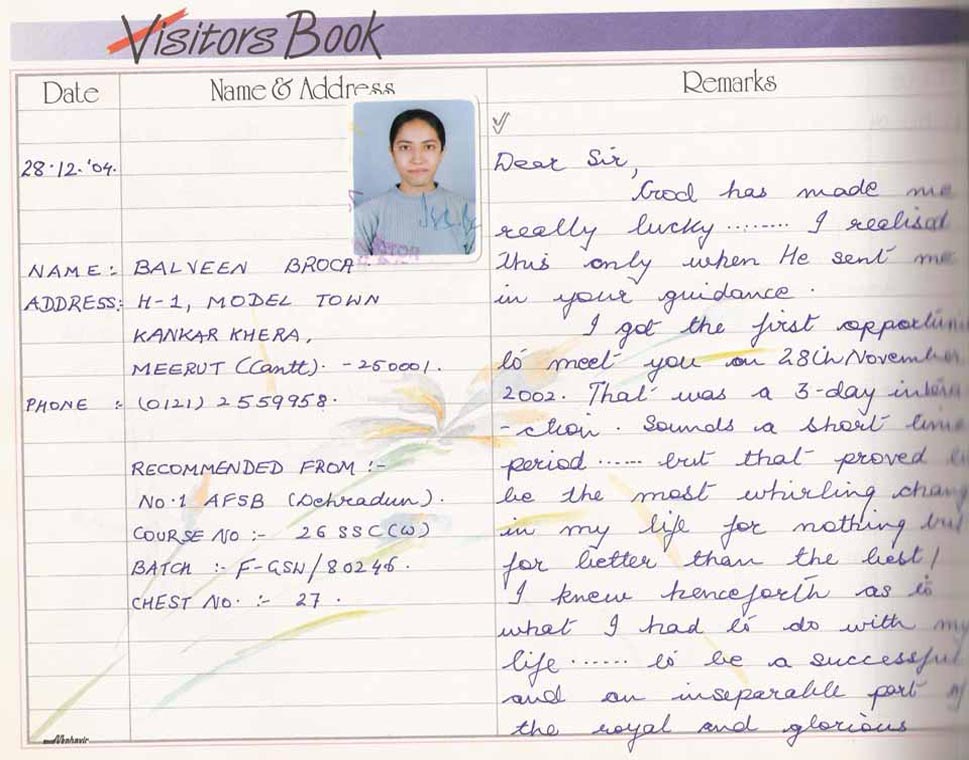 Visitors Book
Date
Name & Address
Remarks
28.12.'04.
NAME :- BALVEEN BROCA.
ADDRESS:- H-1, MODEL TOWN
KANKAR KHERA,
MEERUT (Cantt). - 250001.
PHONE :- (0121) 2559958.
RECOMMENDED FROM :-
No.1 AFSB (Dehradun).
COURSE NO :- 26 SSC(W)
BATCH :- F-GSN/80246.
CHEST NO. :- 27.
Dear Sir,
God has made me
really lucky ........ I realised
this only when He sent me
in your guidance.
I got the first
to meet you on 28th November
2002. That was a 3-day
-ction. Sounds a short time
period ...... but that proved
be the most whirling
in my life for nothing but
for better than the best!
I knew henceforth as to
what I had to do with my
life ...... to be a successful
and an inseparable part of
the royal and glorious